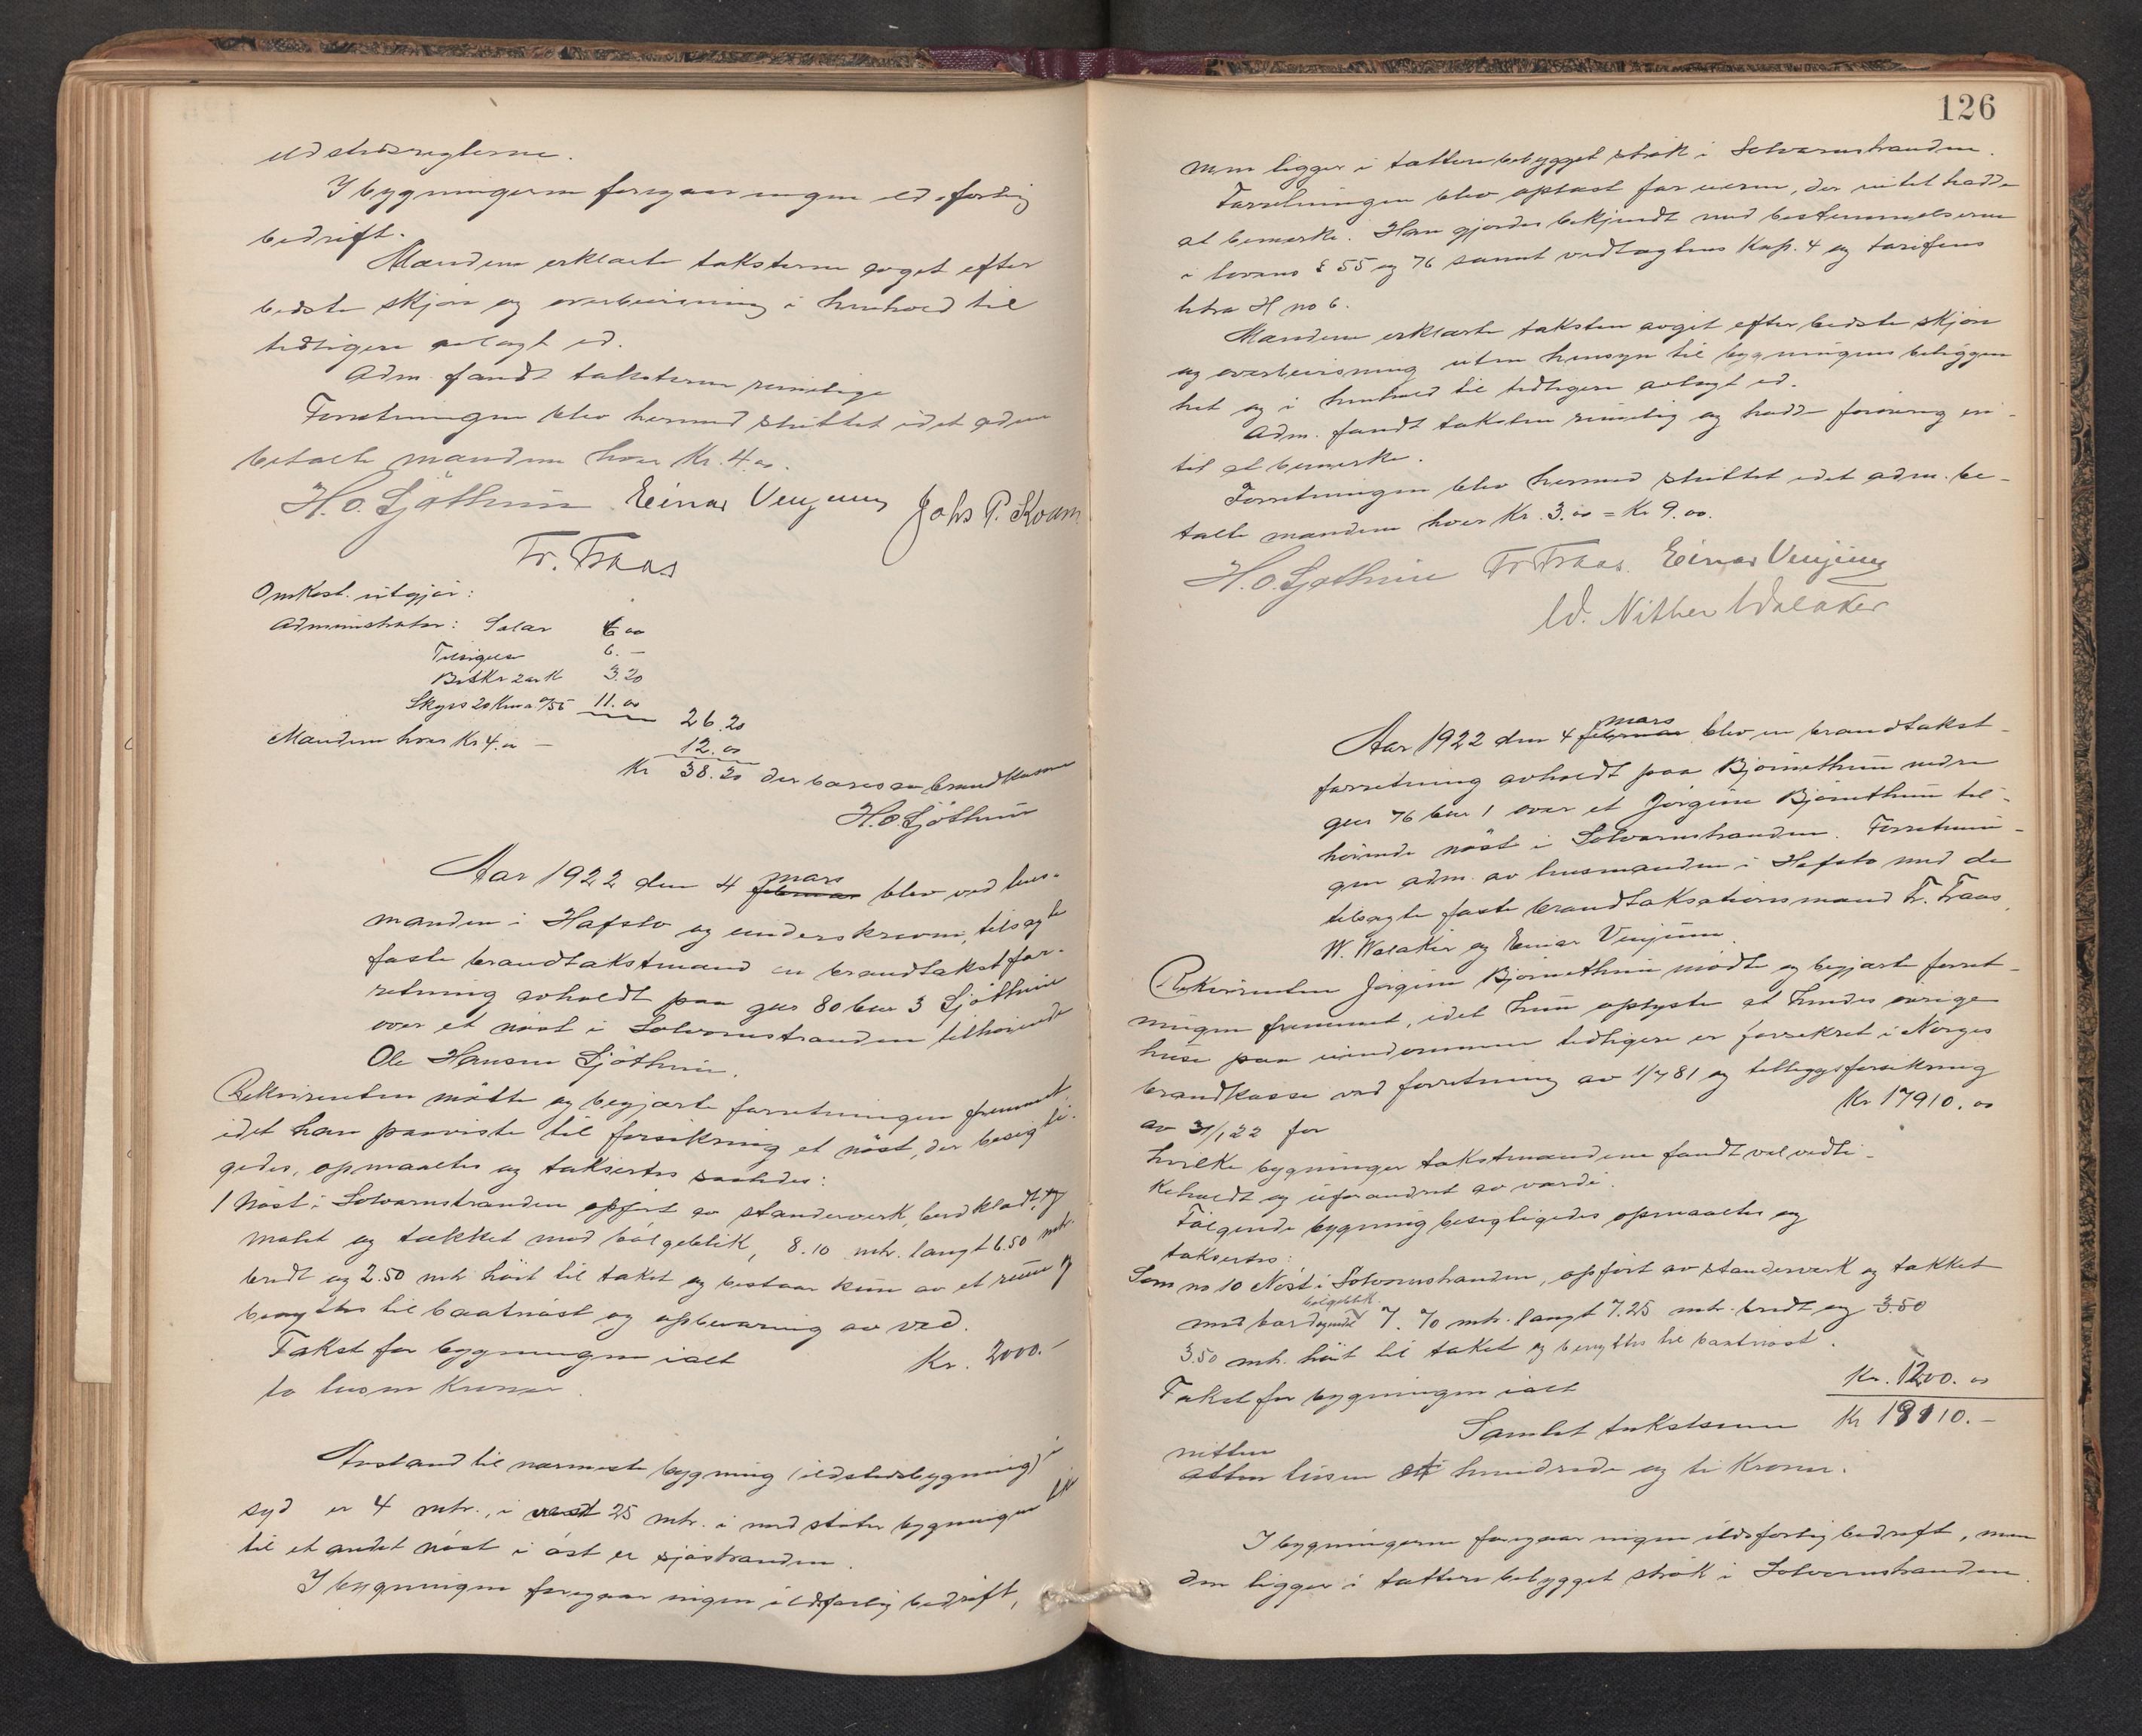 ildstedsreglerne.
I bygningerne foregaar ingen ildsfarlig
bedrift.
Mændene erklærte taksterne avget efter
bedste skjøn og overbevisning i henhold til
tidligere avlagt ed.
Adm. fandt taksterne rimelige
Forretningen blev hermed sluttet idet adm
betalte mændene hver Kr. 4.00.
H. O. Sjøthun Einar Venjum Johs P. Kvam
Fr. Fraas
Omkost. utgjør:
Administrator: Salar 6 00
Tilsigelse 6. —
Beskr 2 ark 3.20
Skyss 20 Km a 0/55 11.00
26.20
Mændene hver Kr 4.00 — 12.00
Kr 38.20 der bæres av brandkassen
H. O. Sjøthun
Aar 1922 den 4 februar mars blev ved lens-
manden i Hafslo og underskrevne, tilsagte
faste brandtakstmænd en brandtakstfor-
retning avholdt paa gno 80 bno 3 Sjøthun
over et nøst i Solvornstranden tilhørende
Ole Hansen Sjøthun.
Rekvirenten møtte og begjærte forretningen fremmet,
idet han paaviste til forsikring et nøst, der besigti-
gedes, opmaaltes og taksertes saaledes:
1 Nøst i Solvornstranden opført av standerverk, bordklædt, og
malet og tækket med bølgeblik, 8.10 mtr. langt 6.50 mtr.
bredt og 2.50 mtr høit til taket og bestaar kun av et rum og
benyttes til baatnøst og opbevaring av ved.
Takst for bygningen ialt Kr. 2000.-
to tusen Kroner.
Avstand til nærmeste bygning (ildstedsbygning) i
syd er 4 mtr., i vest 25 mtr. i nord støter bygningen
til et andet nøst i øst er sjøstranden.
I bygningen foregaar ingen ildsfarlig bedrift,
126
men ligger i tættere bebygget strøk i Solvornstranden.
Forretningen blev oplæst for eieren, der intet hadde
at bemerke. Han gjordes bekjendt med bestemmelserne
i lovens § 55 og 76 samt vedtægtens Kap. 4 og tarifens
litra H no 6.
Mændene erklærte taksten avgit efter bedste skjøn
og overbevisning uten hensyn til bygningens beliggen
het og i henhold til tidligere avlagt ed.
Adm. fandt taksten rimelig og hadde forøvrig in-
tet at bemerke.
Forretningen blev hermed sluttet idet adm. be-
talte mændene hver Kr. 3.00 = Kr 9.00.
H. O. Sjøthun Fr Fraas. Einar Venjum
W. Nitter Walaker
Aar 1922 den 4 februar mars blev en brandtakst-
forretning avholdt paa Bjørnethun nedre
gno 76 bno 1 over et Jørgine Bjørnethun til-
hørende nøst i Solvornstranden. Forretnin-
gen adm. av lensmanden i Hafslo med de
tilsagte faste brandtaksationsmænd Fr. Fraas,
W. Walaker og Einar Venjum.
Rekvirenten Jørgine Bjørnethun mødte og begjærte forret-
ningen fremmet, idet hun oplyste at hendes øvrige
huse paa eiendommen tidligere er forsikret i Norges
brandkasse ved forretning av 1/7 81 og tillægsforsikring
av 31/1 22 for Kr 17910.00
hvilke bygninger takstmændene fandt vel vedli-
keholdt og uforandret av værdi.
Følgende bygning besigtigedes opmaaltes og
taksertes:
Som no 10 Nøst i Solvornstranden, opført av standerverk og tækket
med bølgeblik 7.70 mtr. langt 7.25 mtr. bredt og 3.50
3.50 mtr. høit til taket og benyttes til baatnøst.
Takst for bygningen ialt Kr. 1200.00
Samlet takstsum Kr 19110.—
nitten
atten tusen et hundrede og ti Kroner.
I bygningerne foregaar ingen ildsfarlig bedrift, men
den ligger i tættere bebygget strøk i Solvornstranden.